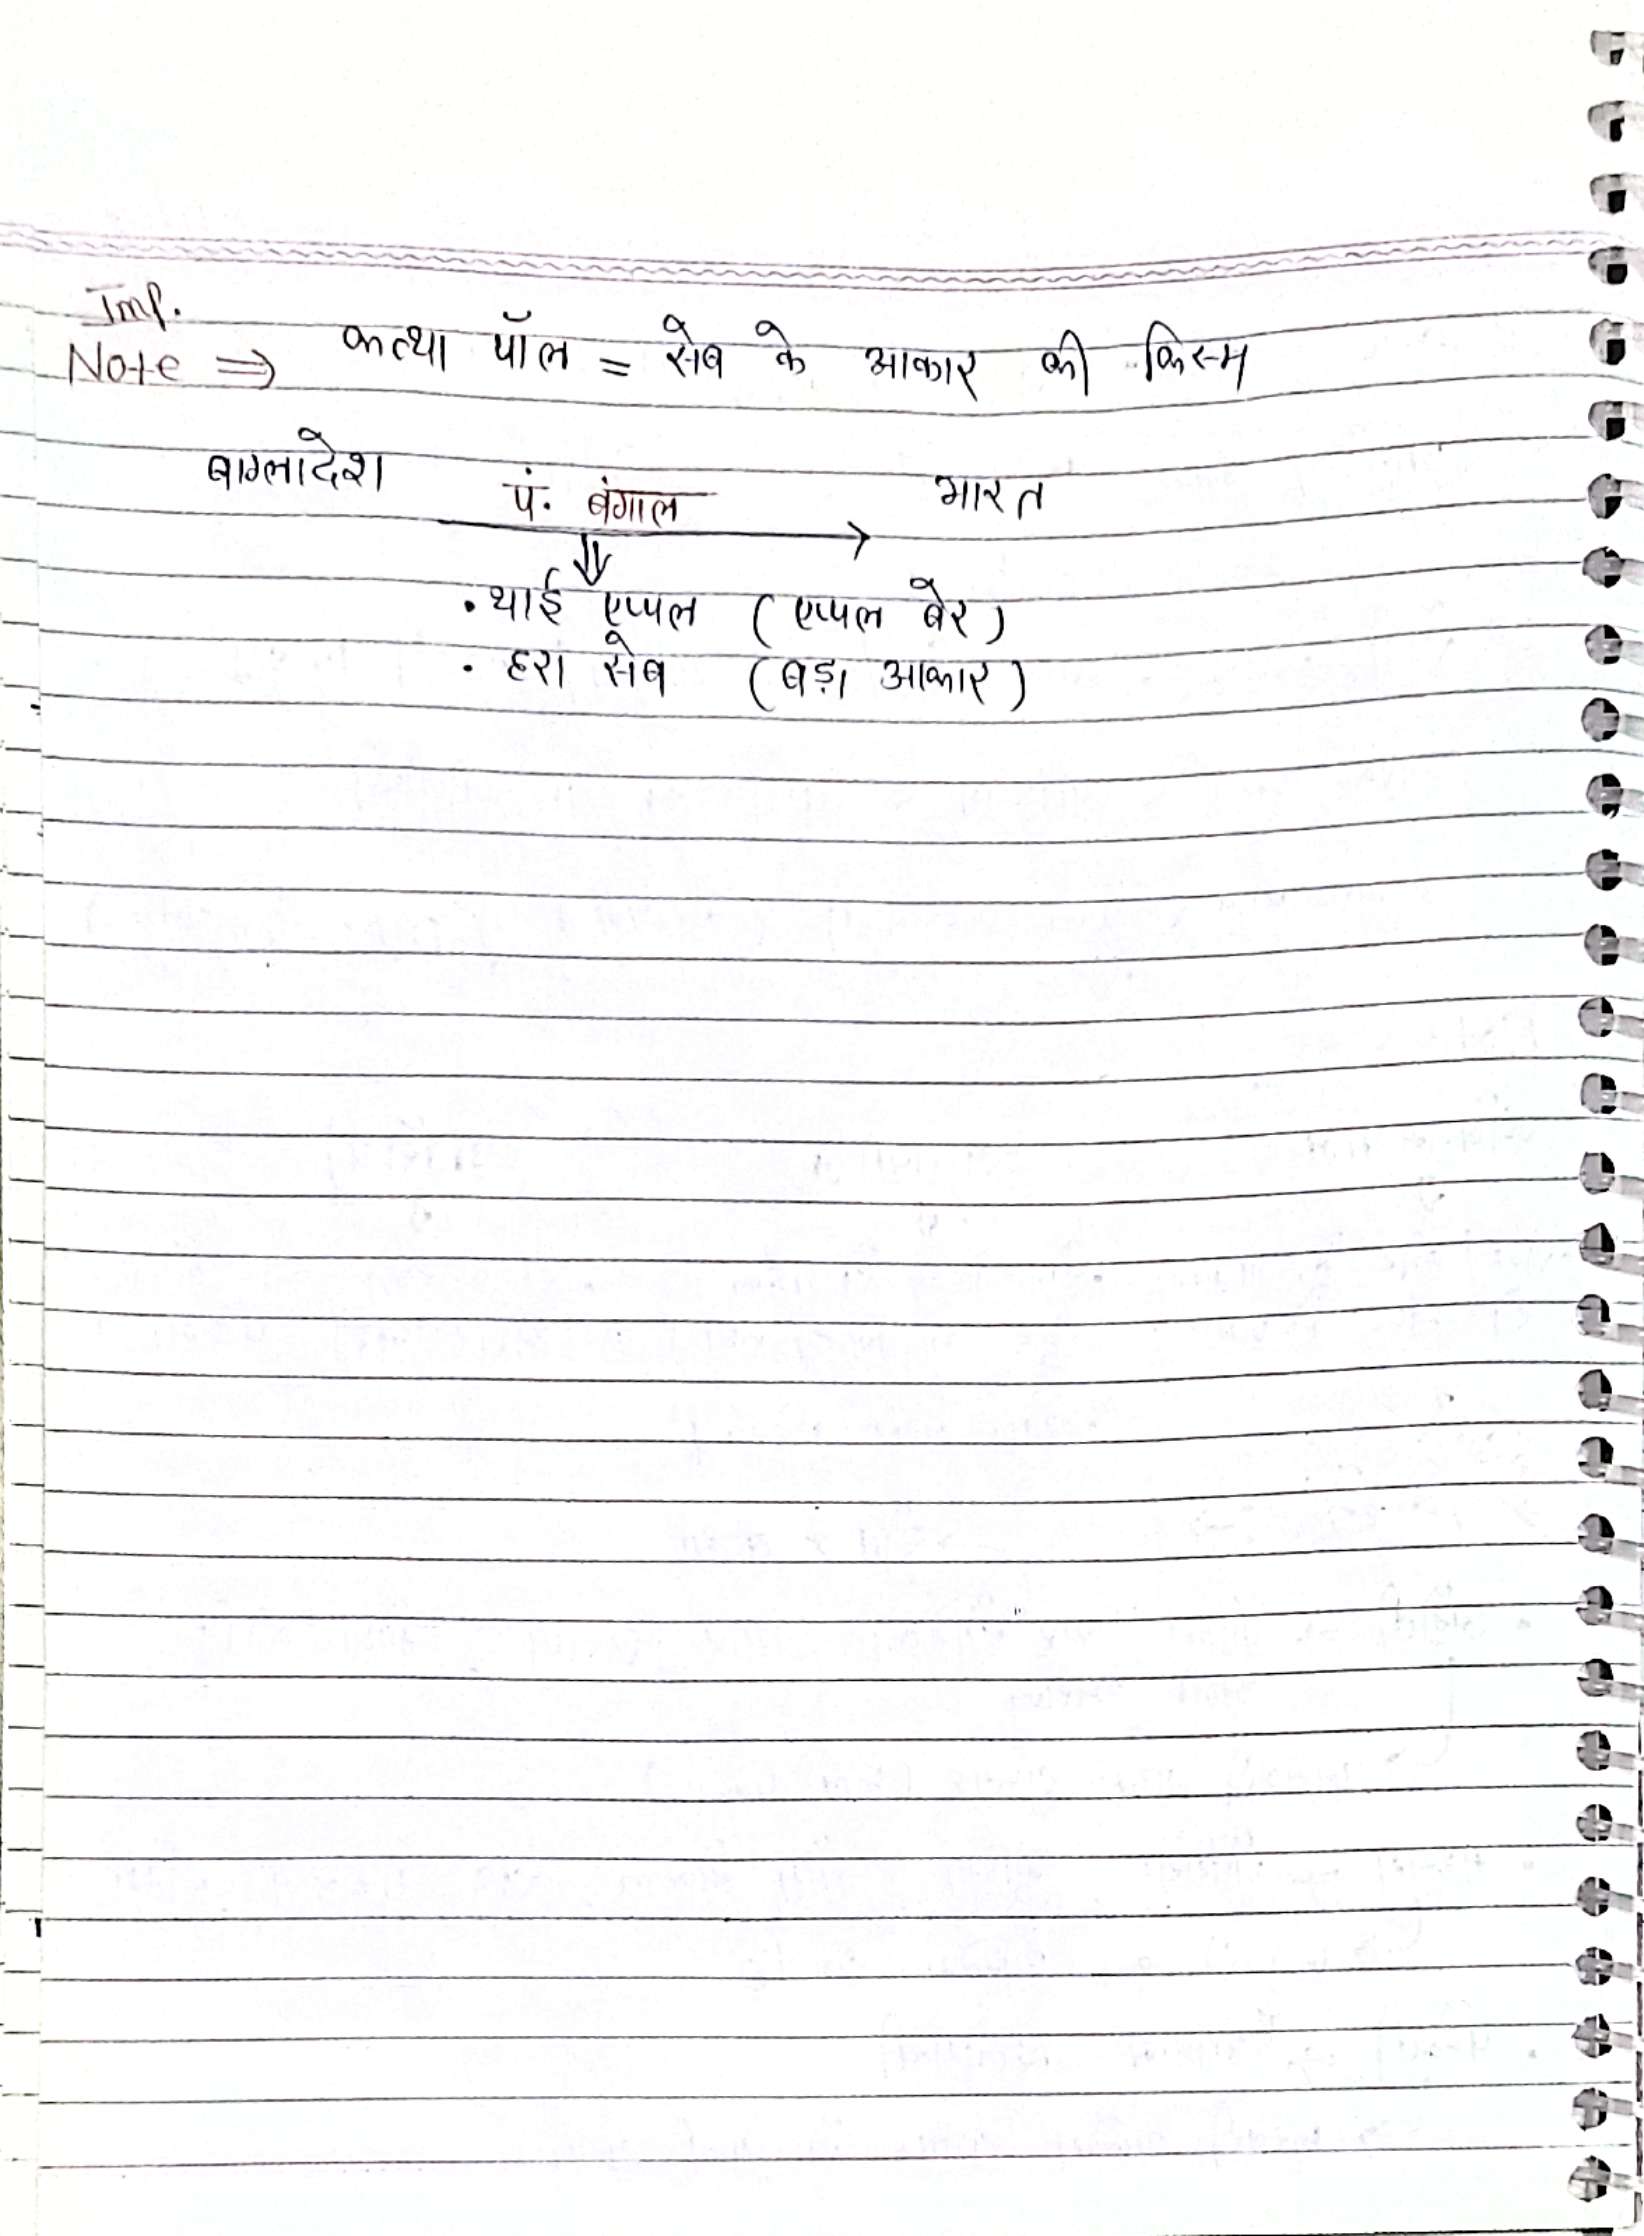 Imp.
Note ⇒ कत्था पॉल = सेब के आकार की किस्म
बाग्लादेश पं. बंगाल → भारत
⇓
• थाई एप्पल (एप्पल बेर)
• हरा सेब (बड़ा आकार)